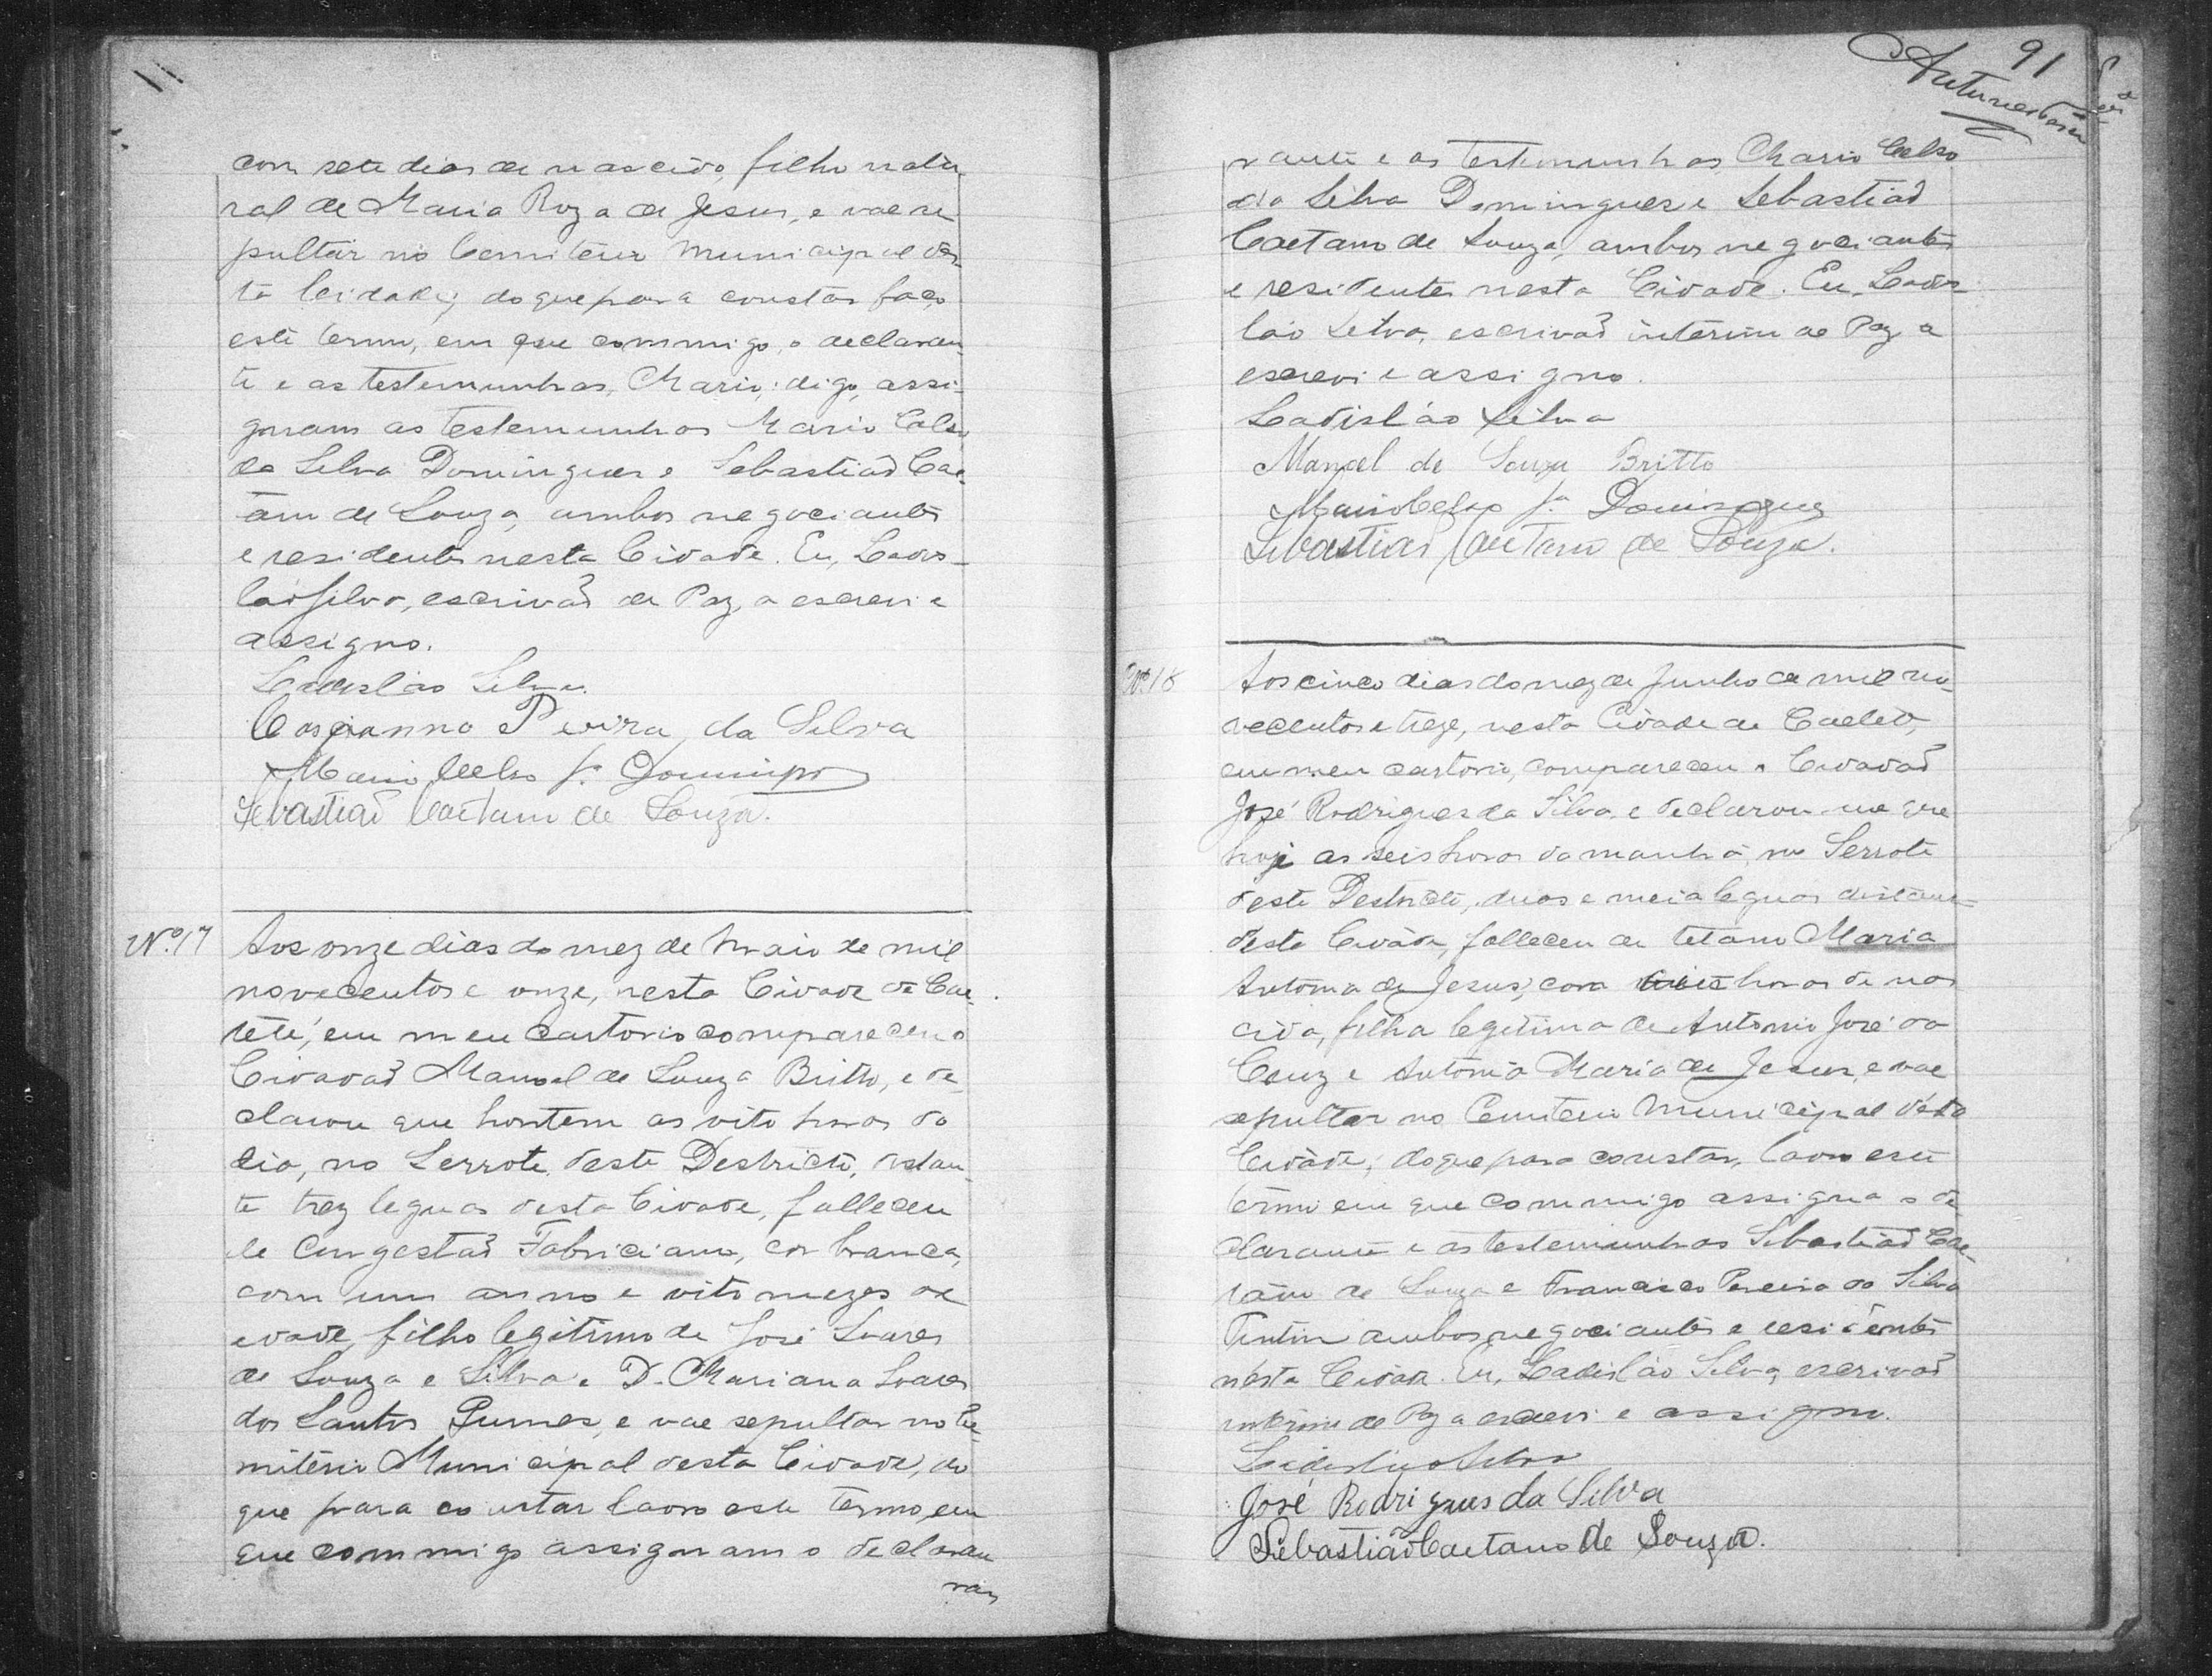 com sete dias de nascido, filho natu
ral de Maria Roza de Jesus, e vae se
pultar no Cemiterio Municipal des
ta Cidade; do que para constar faço
este termo, em que commigo, o declaran
te e as testemunhas, Mario; digo, assi-
gnam as testemunhas Mario Celso
da Silva Domingues e Sebastião Cae
tano de Souza, ambos negociantes
e residentes nesta Cidade. Eu, Ladis-
láo Silva, escrivão de Paz, a escrevi e
assigno.
Ladisláo Silva
Pereira da Silva
Mario Celso Sa. Domingues
Sebastião Caetano de Souza.
Nº 17
Aos onze dias do mez de Maio de mil
novecentos e onze, nesta Cidade de Cae
teté, em meu cartorio compareceu o
Cidadão Manoel de Souza Britto, e de
clarou que hontem as oito horas do
dia, no Serrote deste Destricto, distan
te trez leguas desta Cidade, falleceu
de Congestão Fabriciano, cor branca,
com um anno e oito mezes de
edade, filho legitimo de José Soares
de Souza e Silva e D. Mariana Soares
dos Santos, e vae sepultar no Ce
miterio Municipal desta Cidade, do
que para constar lavro este termo, em
que commigo assignam o declaran
91
Antunes
e as testemunhas Mario Celso
da Silva Domingues e Sebastião
Caetano de Souza, ambos negociantes
e residentes nesta Cidade. Eu, Ladis-
láo Silva, escrivão interino de Paz a
escrevi e assigno.
Ladisláo Silva
Manoel de Souza Britto
Mario Celso Sa. Domingues
Sebastião Caetano de Souza.
Nº 18
Aos cinco dias do mez de Junho de mil no
vecentos e treze, nesta Cidade de Caeteté,
em meu cartorio, compareceu o Cidadão
José Rodrigues da Silva, e declarou-me que
hoje as seis horas da manhã, no Serrote
deste Destricto, duas e meia leguas distante
desta Cidade, falleceu de tetano Maria
Antonia de Jesus, com horas de nas
cida, filha legitima de Antonio José da
Cruz e Antonia Maria de Jesus, e vae
sepultar no Cemiterio Municipal desta
Cidade; do que para constar, lavro este
termo em que commigo assigna o de
clarante e as testemunhas Sebastião Cae-
tano de Souza e Francisco Pereira da Silva
ambos negociantes e residentes
nesta Cidade. Eu, Ladisláo Silva, escrivão
interino de Paz a escrevi e assigno.
Ladisláo Silva
José Rodrigues da Silva
Sebastião Caetano de Souza.